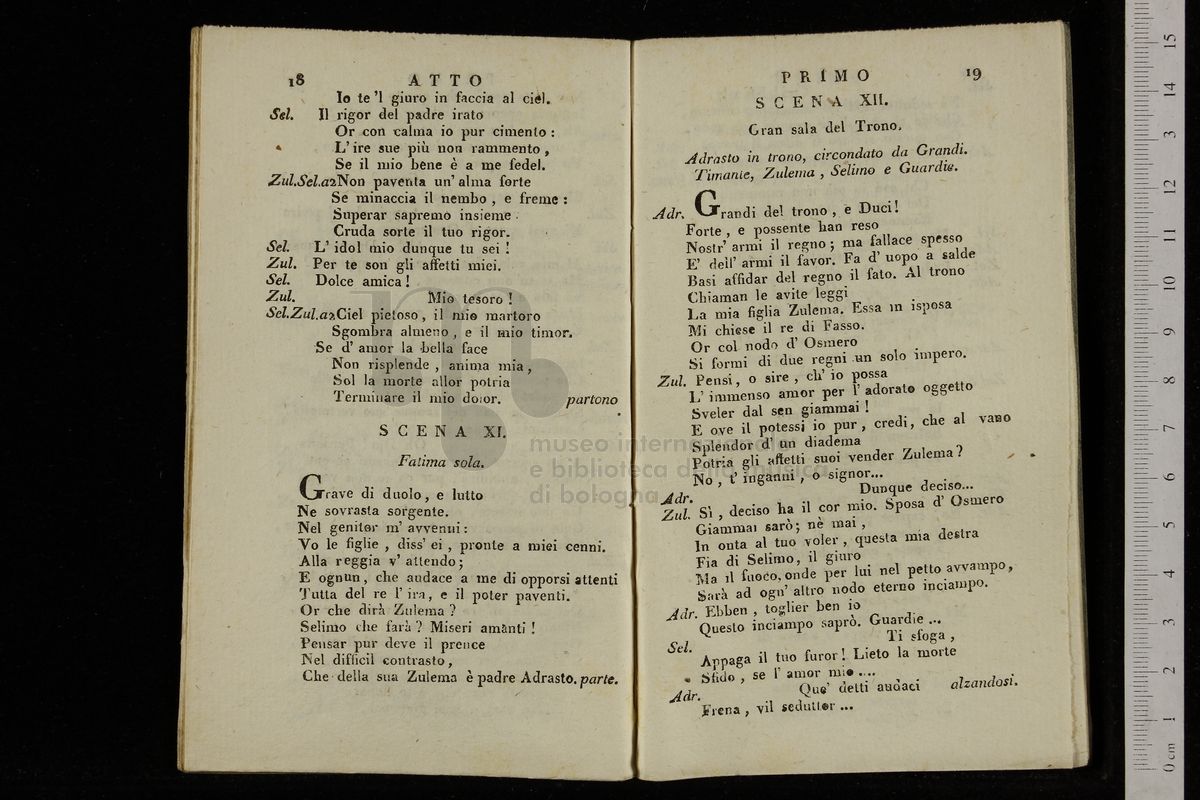 18 ATTO
Io te 'l giuro in faccia al ciel.
Sel. Il rigor del padre irato
Or con calma io pur cimento :
L' ire sue più non rammento ,
Se il mio bene è a me fedel.
Zul.Sel.a2 Non paventa un' alma forte
Se minaccia il nembo , e freme :
Superar sapremo insieme
Cruda sorte il tuo rigor.
Sel. L' idol mio dunque tu sei !
Zul. Per te son gli affetti miei.
Sel. Dolce amica !
Zul. Mio tesoro !
Sel.Zul.a2 Ciel pietoso , il mio martoro
Sgombra almeno , e il mio timor.
Se d' amor la bella face
Non risplende , anima mia ,
Sol la morte allor potria
Terminare il mio dolor. partono
SCENA XI.
Fatima sola.
Grave di duolo , e lutto
Ne sovrasta sorgente.
Nel genitor m' avvenni :
Vo le figlie , diss' ei , pronte a miei cenni.
Alla reggia v' attendo ;
E ognun , che audace a me di opporsi attenti
Tutta del re l' ira , e il poter paventi.
Or che dirà Zulema ?
Selimo che farà ? Miseri amanti !
Pensar pur deve il prence
Nel difficil contrasto ,
Che della sua Zulema è padre Adrasto. parte.
PRIMO 19
SCENA XII.
Gran sala del Trono.
Adrasto in trono, circondato da Grandi.
Timante, Zulema , Selimo e Guardie.
Adr. Grandi del trono , e Duci !
Forte , e possente han reso
Nostr' armi il regno ; ma fallace spesso
E' dell' armi il favor. Fa d' uopo a salde
Basi affidar del regno il fato. Al trono
Chiaman le avite leggi
La mia figlia Zulema. Essa in isposa
Mi chiese il re di Fasso.
Or col nodo d' Osmero
Si formi di due regni un solo impero.
Zul. Pensi , o sire , ch' io possa
L' immenso amor per l' adorato oggetto
Sveler dal sen giammai !
E ove il potessi io pur , credi , che al vano
Splendor d' un diadema
Potria gli affetti suoi vender Zulema ?
No , t' inganni , o signor...
Adr. Dunque deciso...
Zul. Sì , deciso ha il cor mio. Sposa d' Osmero
Giammai sarò ; nè mai ,
In onta al tuo voler , questa mia destra
Fia di Selimo, il giuro
Ma il fuoco, onde per lui nel petto avvampo ,
Sarà ad ogn' altro nodo eterno inciampo.
Adr. Ebben , toglier ben io
Questo inciampo saprò. Guardie ...
Sel. Ti sfoga ,
Appaga il tuo furor ! Lieto la morte
Sfido , se l' amor mio ....
Adr. Que' detti audaci alzandosi.
Frena , vil seduttor ...
museo internazionale
e biblioteca della musica
di bologna
0 cm 1 2 3 4 5 6 7 8 9 10 11 12 13 14 15